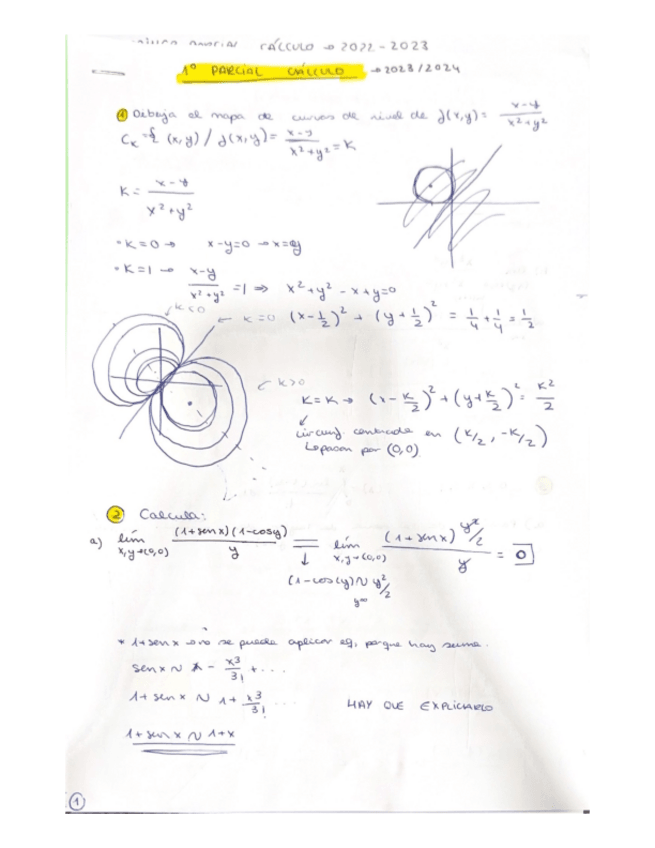 PARCIAL CÁLCULO → 2022-2023
1º PARCIAL CÁLCULO → 2023/2024
① Dibuja el mapa de curvas de nivel de f(x,y) = x-y / x²+y²
Cₖ = { (x,y) / f(x,y) = x-y / x²+y² = K
K = x-y / x²+y²
• K=0 → x-y=0 → x=y
• K=1 → x-y / x²+y² = 1 ⇒ x²+y² -x+y=0
K<0
← K=0 (x-1/2)² + (y+1/2)² = 1/4 + 1/4 = 1/2
← K>0
K=K → (x-K/2)² + (y+K/2)² = K²/2
circunf. centrada en (K/2, -K/2)
↳ pasan por (0,0)
② Calcula:
a) lím x,y→(0,0) (1+senx)(1-cosy) / y = lím x,y→(0,0) (1+senx) y²/2 / y = 0
↓
(1-cos(y) ∼ y²/2
* 1+senx → no se puede aplicar eq, porque hay suma.
senx ∼ x - x³/3! + ...
1+senx ∼ 1+ x³/3! ...
HAY QUE EXPLICARLO
1+senx ∼ 1+x
①